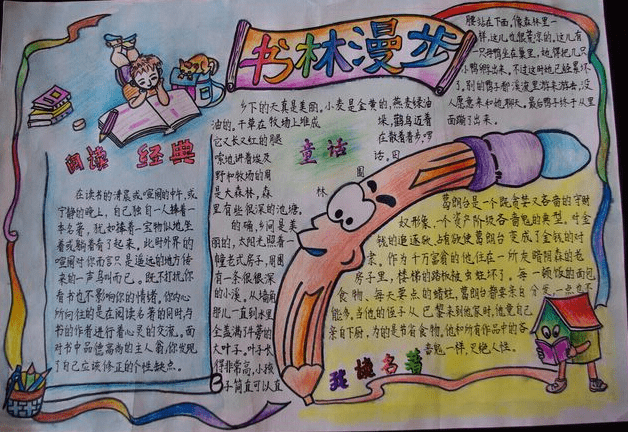 书林漫步
阅读 经典
在读书的清晨或喧闹的中午,或
宁静的晚上,自己独自一人捧着一
本名著,犹如捧着一宝物似地,坐
着或躺着看了起来,此时外界的
喧闹对你而言只是遥远的地方传
来的一声鸟叫而已。既不打扰你
看书也不影响你的情绪,你内心
所向往的是在阅读名著的同时与
书的作者进行着心灵的交流。面
对书中品德高尚的主人翁,你发现
了自己应该修正的个性缺点。
童话
乡下的天真是美丽。小麦是金黄的,燕麦绿油
油的。干草在牧场上堆成 垛,鹳鸟迈着
它又长又红的腿 在散着步,啰
嗦地讲着埃及 话。田
野和牧场的周 围
是大森林,森 林
里有些很深的池塘。
的确,乡间是美
丽的,太阳光照着一
幢老式房子,周围
有一条很深
的小溪。从墙角
那儿一直到水里
全盖满牛蒡的
大叶子。叶子长
得非常高,小孩
子简直可以直
腰站在下面,像森林里一
样,这儿也很荒凉的。这儿有
一只母鸭坐在巢里,她得把几只
小鸭孵出来。不过这时她已经累坏
了。别的鸭子都溪流里游来游去,没
人愿意来和她聊天。最后鸭子终于从里
面蹦了出来。
我读名著
葛朗台是一个既贪婪又吝啬的守财
奴形象,一个资产阶级吝啬鬼的典型。对金
钱的追逐欲,占有欲使葛朗台变成了金钱的对
象,作为千万富翁的他,住在一所灰暗阴森的老
房子里,楼梯的踏板被虫蛀坏了。每一顿饭的面包
食物、每天要点的蜡蛀,葛朗台都要亲自分发一点也不
能多,当他的侄子从巴黎来到他家时,他竟自己
亲自下厨,为的是节省食物,他和所有作品中的吝
啬鬼一样,灭绝人性。